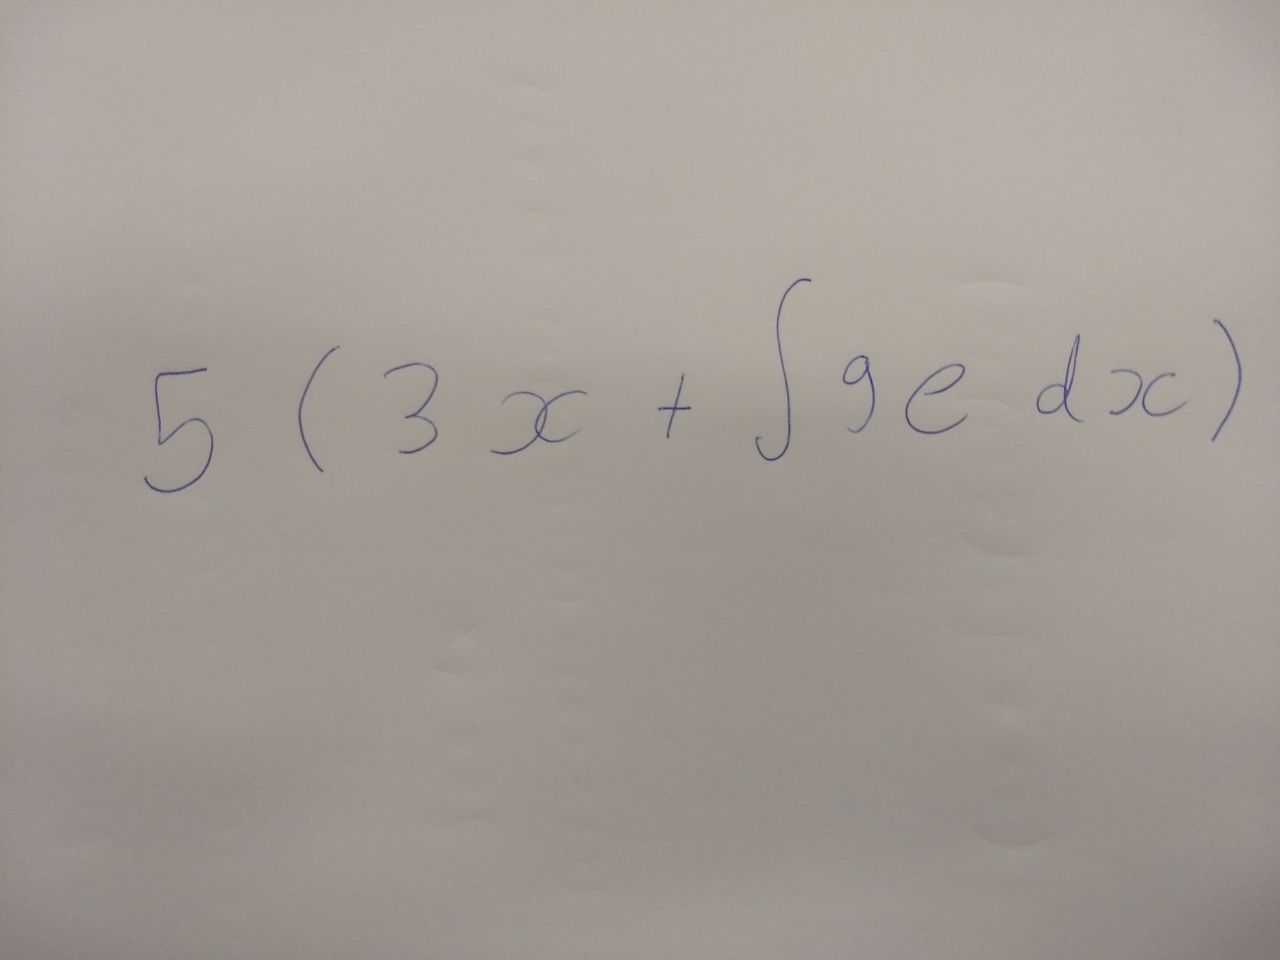 5 ( 3 x + ∫ 9 e d x )